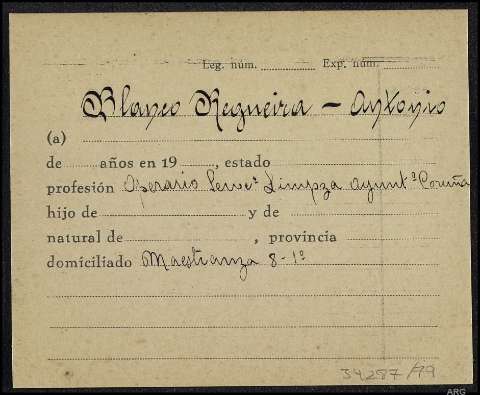 Leg. núm. Exp. núm.
Blanco Regueira - Antonio
(a)
de años en 19 , estado
profesión Operario Servº Limpza Ayuntº Coruña
hijo de y de
natural de , provincia
domiciliado Maestranza 8-1º
34287/79
ARG